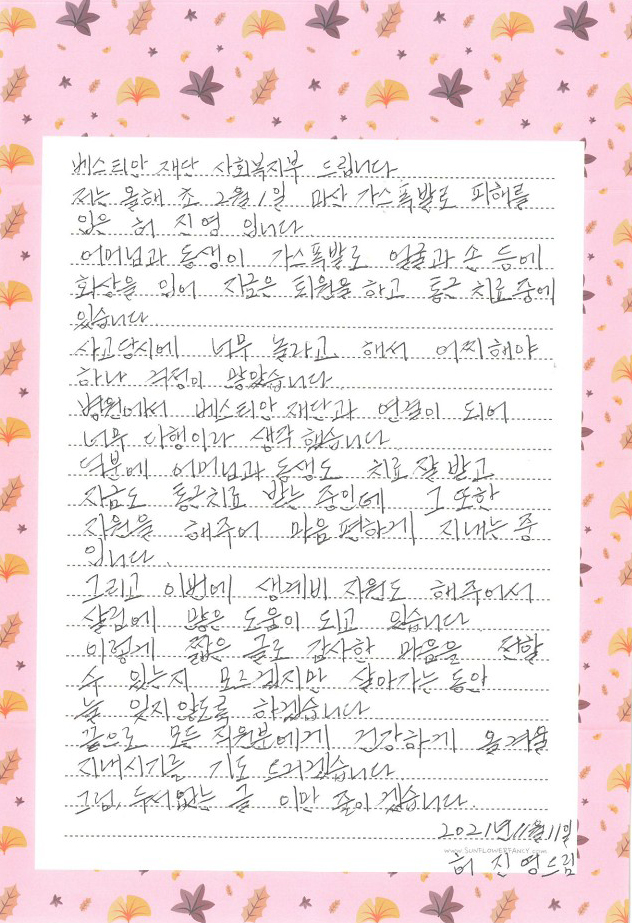 베스티안 재단 사회복지부 드립니다.
저는 올해 초 2월 1일 마산 가스폭발로 피해를
입은 허 진 영 입니다
어머님과 동생이 가스폭발로 얼굴과 손 등에
화상을 입어 지금은 퇴원을 하고 통근 치료 중에
있습니다
사고당시에 너무 놀라고 해서 어찌해야
하나 걱정이 많았습니다.
병원에서 베스티안 재단과 연결이 되어
너무 다행이라 생각 했습니다
덕분에 어머님과 동생도 치료 잘 받고
지금도 통근치료 받는 중인데 그 또한
지원을 해주어 마음 편하게 지내는 중
입니다.
그리고 이번에 생계비 지원도 해주어서
살림에 많은 도움이 되고 있습니다.
이렇게 짧은 글로 감사한 마음을 전할
수 있는지 모르겠지만 살아가는 동안
늘 잊지 않도록 하겠습니다
끝으로 모든 직원분에게 건강하게 올겨울
지내시기를 기도 드리겠습니다.
그럼, 두서없는 글 이만 줄이겠습니다.
2021년 11월 11일
www.SUNFLOWERFAMLY.com
허 진 영드림